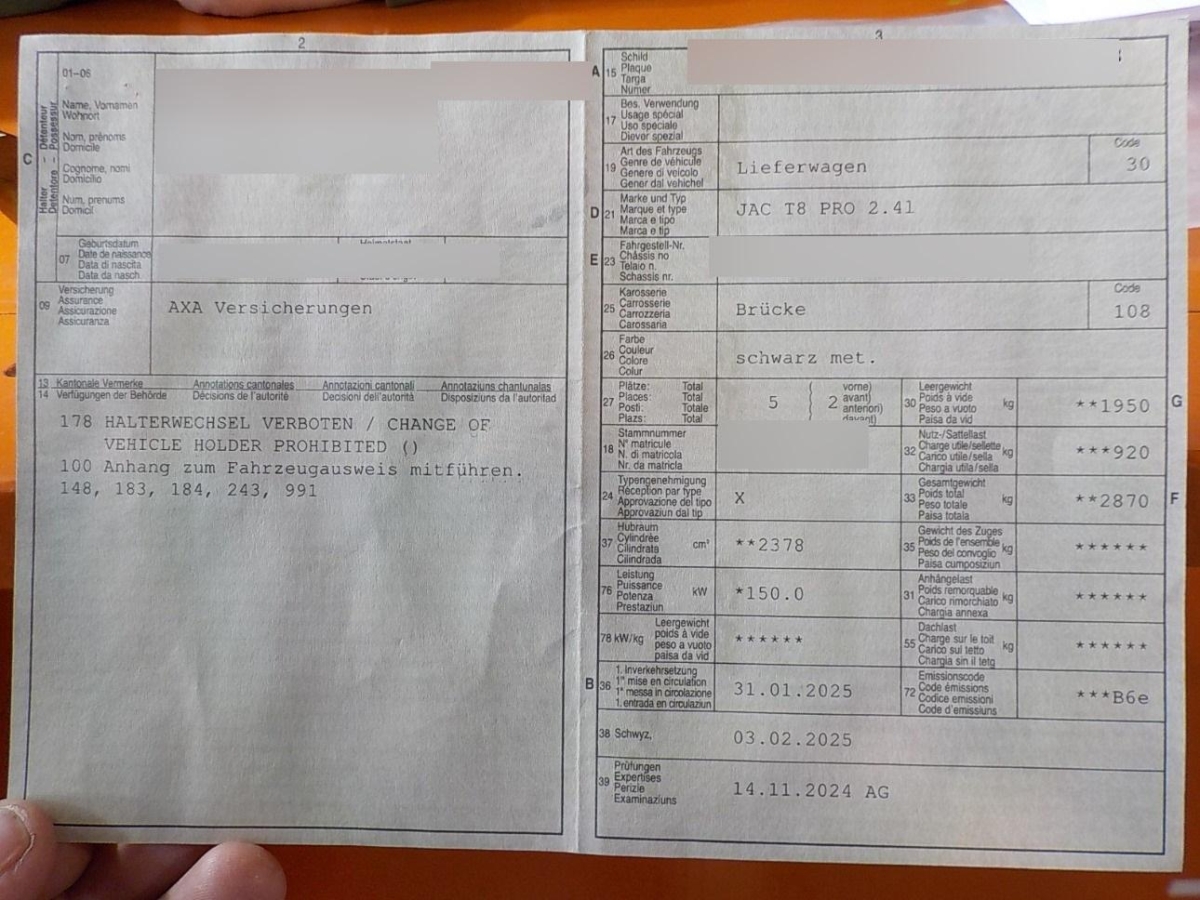 2
01-06
Name, Vornamen
Wohnort
Nom, prénoms
Domicile
Cognome, nomi
Domicilio
Num, prenums
Domicil
C
Halter - Détenteur
Detentore - Possessur
07
Geburtsdatum
Date de naissance
Data di nascita
Data da nasch.
09
Versicherung
Assurance
Assicurazione
Assicuranza
AXA Versicherungen
13 Kantonale Vermerke Annotations cantonales Annotazioni cantonali Annotaziuns chantunalas
14 Verfügungen der Behörde Décisions de l'autorité Decisioni dell'autorità Disposiziuns da l'autoritad
178 HALTERWECHSEL VERBOTEN / CHANGE OF
VEHICLE HOLDER PROHIBITED ()
100 Anhang zum Fahrzeugausweis mitführen.
148, 183, 184, 243, 991
3
A 15
Schild
Plaque
Targa
Numer
17
Bes. Verwendung
Usage spécial
Uso speciale
Diever spezial
19
Art des Fahrzeugs
Genre de véhicule
Genere di veicolo
Gener dal vehichel
Lieferwagen
Code
30
D 21
Marke und Typ
Marque et type
Marca e tipo
Marca e tip
JAC T8 PRO 2.4l
E 23
Fahrgestell-Nr.
Châssis no
Telaio n.
Schassis nr.
25
Karosserie
Carrosserie
Carrozzeria
Carossaria
Brücke
Code
108
26
Farbe
Couleur
Colore
Colur
schwarz met.
27
Plätze: Total
Places: Total
Posti: Totale
Plazs: Total
5
2
vorne)
avant)
anteriori)
davant)
30
Leergewicht
Poids à vide
Peso a vuoto
Paisa da vid
kg
**1950
G
18
Stammnummer
N° matricule
N. di matricola
Nr. da matricla
32
Nutz-/Sattellast
Charge utile/sellette
Carico utile/sella
Chargia utila/sella
kg
***920
24
Typengenehmigung
Réception par type
Approvazione del tipo
Approvaziun dal tip
X
33
Gesamtgewicht
Poids total
Peso totale
Paisa totala
kg
**2870
F
37
Hubraum
Cylindrée
Cilindrata
Cilindrada
cm³
**2378
35
Gewicht des Zuges
Poids de l'ensemble
Peso del convoglio
Paisa cumposiziun
kg
******
76
Leistung
Puissance
Potenza
Prestaziun
kW
*150.0
31
Anhängelast
Poids remorquable
Carico rimorchiato
Chargia annexa
kg
******
78 kW/kg
Leergewicht
poids à vide
peso a vuoto
paisa da vid
******
55
Dachlast
Charge sur le toit
Carico sul tetto
Chargia sin il tetg
kg
******
B 36
1. Inverkehrsetzung
1re mise en circulation
1a messa in circolazione
1. entrada en circulaziun
31.01.2025
72
Emissionscode
Code émissions
Codice emissioni
Code d'emissiuns
***B6e
38 Schwyz,
03.02.2025
39
Prüfungen
Expertises
Perizie
Examinaziuns
14.11.2024 AG